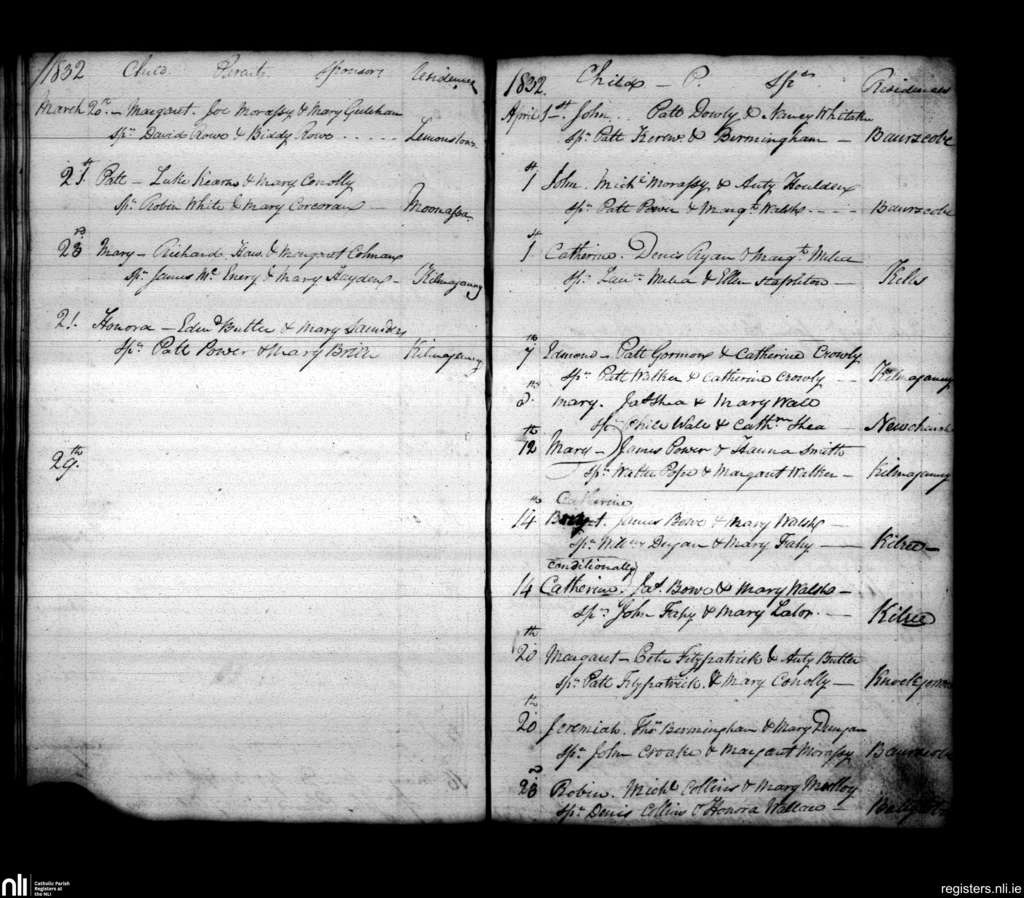 1832 Child Parents Sponsors Residences
March 20th - Margaret. Joe Morassy & Mary
Spr David Rowe & Biddy Rowe - - - - -
21st Patt - Luke Kearns & Mary Conolly
Spr Robin White & Mary Corcoran -
23d Mary - Richard & Margaret Colman
Spr James Mc Enery & Mary Hayden - Kilmaganny
21. Honora - Edmd Butler & Mary Saunders
Spr Patt Power & Mary Kilmaganny
29th
1832. Childs - P. Sprs Residences
April 1st. John. . . Patt Dowly & Nancy Whitaker
Spr Patt & Birmingham - Baurscobe
1st John. Michl Morassy & Anty Houlden
Spr Patt Power & Margt Walsh - - - - Baurscobe
1st Catherine. Denis Ryan & Margt Melia
Spr Laure Melia & Ellen Stapleton - Kells
7th Edmond - Patt Gorman & Catherine Crowly
Spr Patt Walker & Catherine Crowly - - Kilmaganny
Mary. Jas Shea & Mary Wall
Spr Wall & Cathne Shea - Newchurch
12th Mary - James Power & Hanna Smith
Spr Walter Pope & Margaret Walker - Kilmaganny
Catherine
14th James Bowe & Mary Walsh -
Spr Willm Dugan & Mary Fahy - Kilree -
Conditionally
14 Catherine. Jas. Bowe & Mary Walsh -
Spr John Fahy & Mary Lalor. - Kilree
20th Margaret - Peter Fitzpatrick & Anty Butler
Spr Patt Fitzpatrick. & Mary Conolly -
20th Jeremiah. Thos Birmingham & Mary Dungan
Spr John Croake & Margaret Morassy
23d Robin. Michl Collins & Mary Molloy
Spr Denis Collins & Honora Wallace -
nli Catholic Parish
Registers at
the NLI
registers.nli.ie